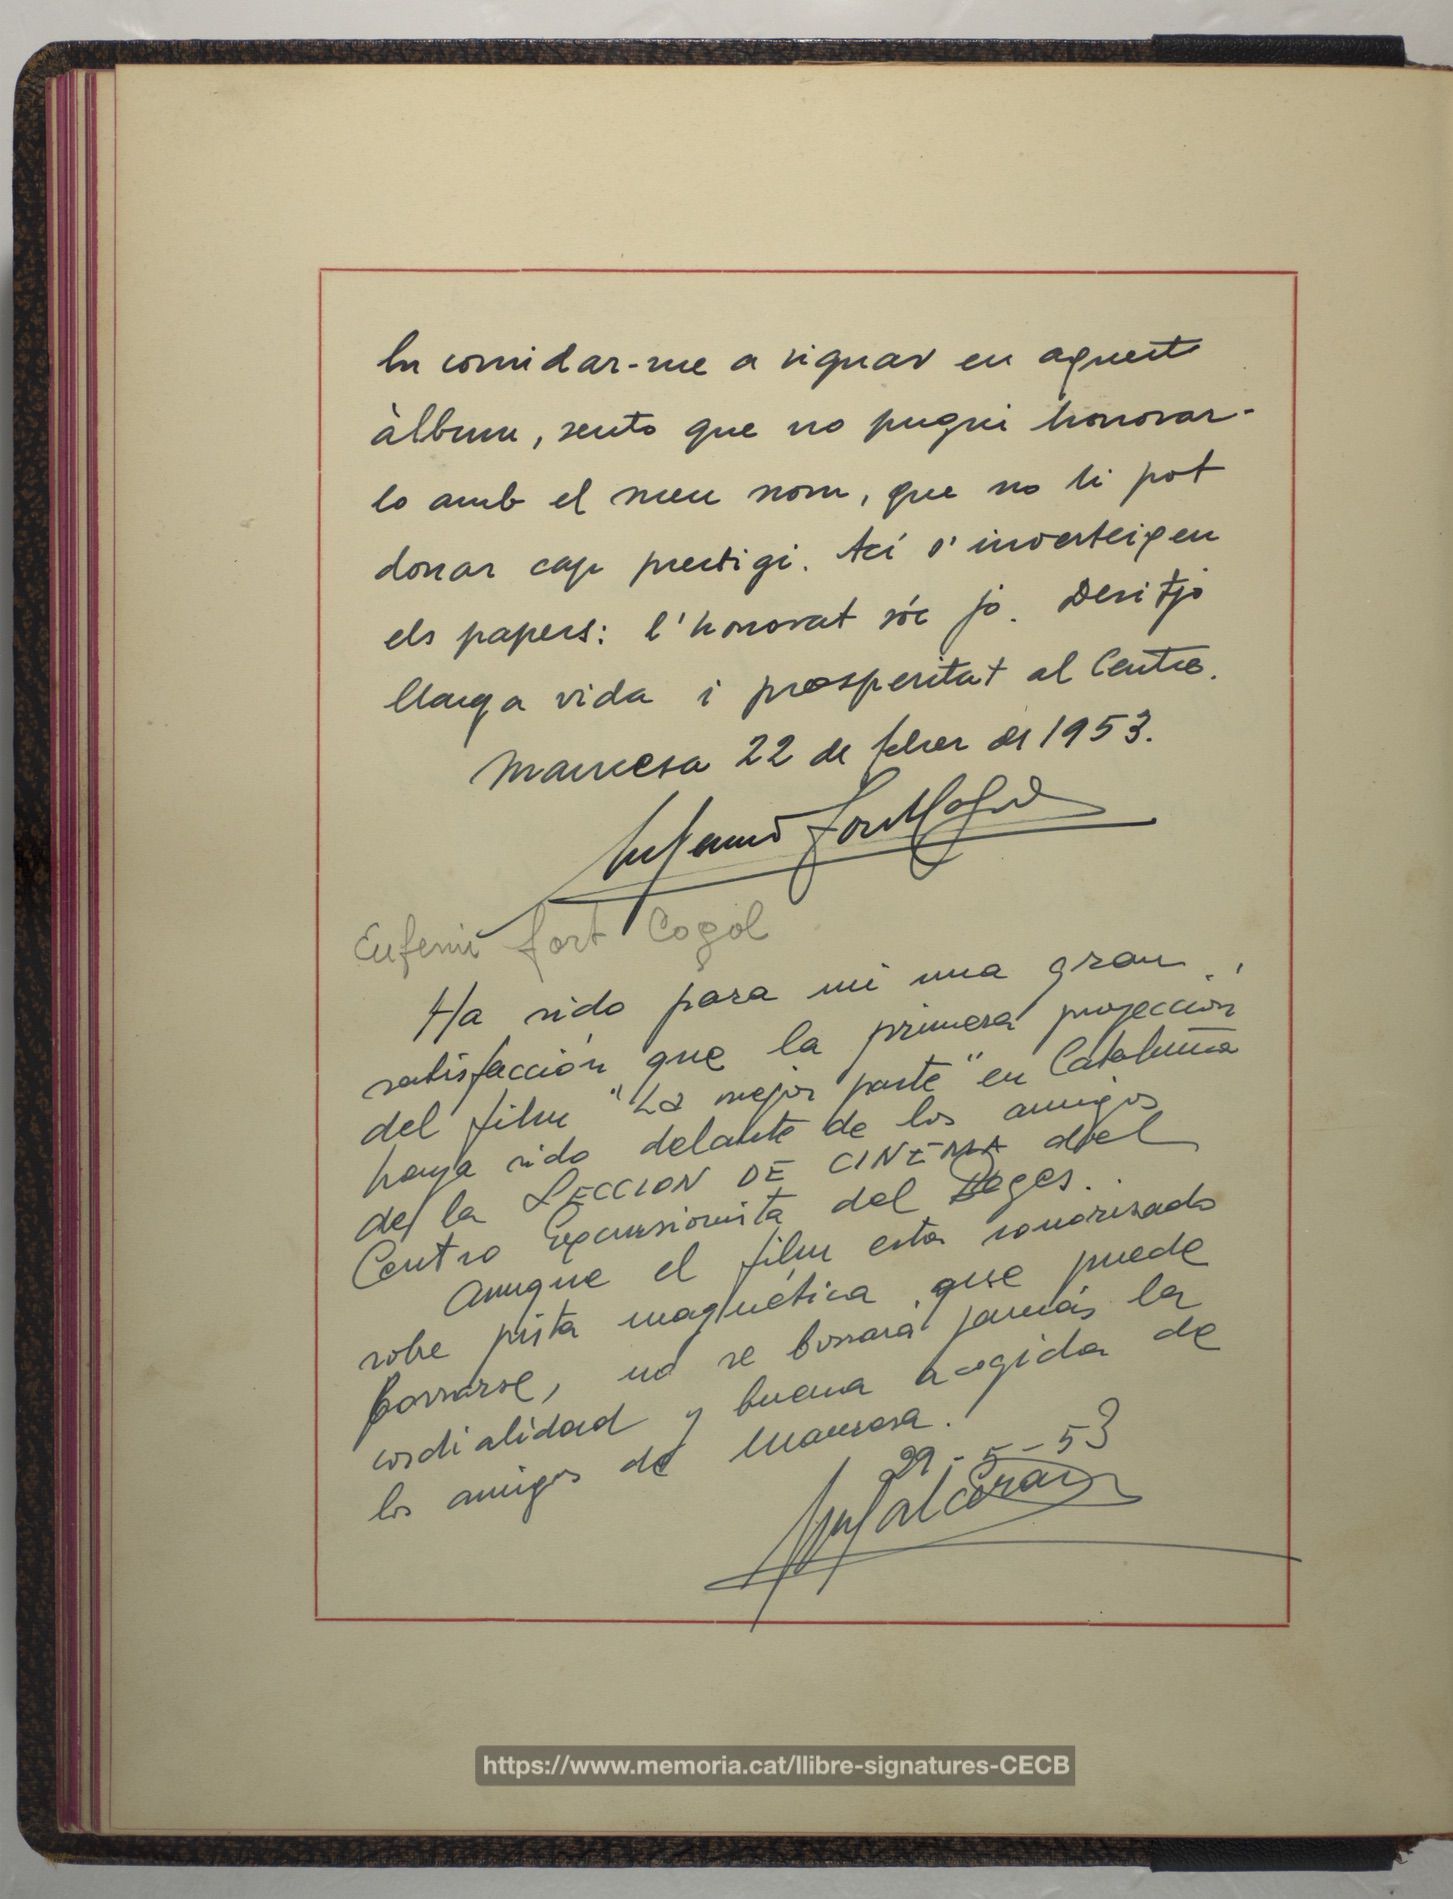 En convidar-me a signar en aquest
àlbum, sento que no pugui honorar-
lo amb el meu nom, que no li pot
donar cap prestigi. Ací s'inverteigen
els papers: l'honorat sóc jo. Desitjo
llarga vida i prosperitat al Centre.
Manresa 22 de febrer de 1953.
Eufemià Fort Cogol
Ha sido para mi una gran
satisfacción que la primera proyección
del film "La mejor parte" en Cataluña
haya sido delante de los amigos
de la SECCION DE CINEMA del
Centro Excursionista del Bages.
Aunque el film esta sonorizado
sobre pista magnética que puede
borrarse, no se borrará jamás la
cordialidad y buena acogida de
los amigos de Manresa.
29-5-53
https://www.memoria.cat/llibre-signatures-CECB